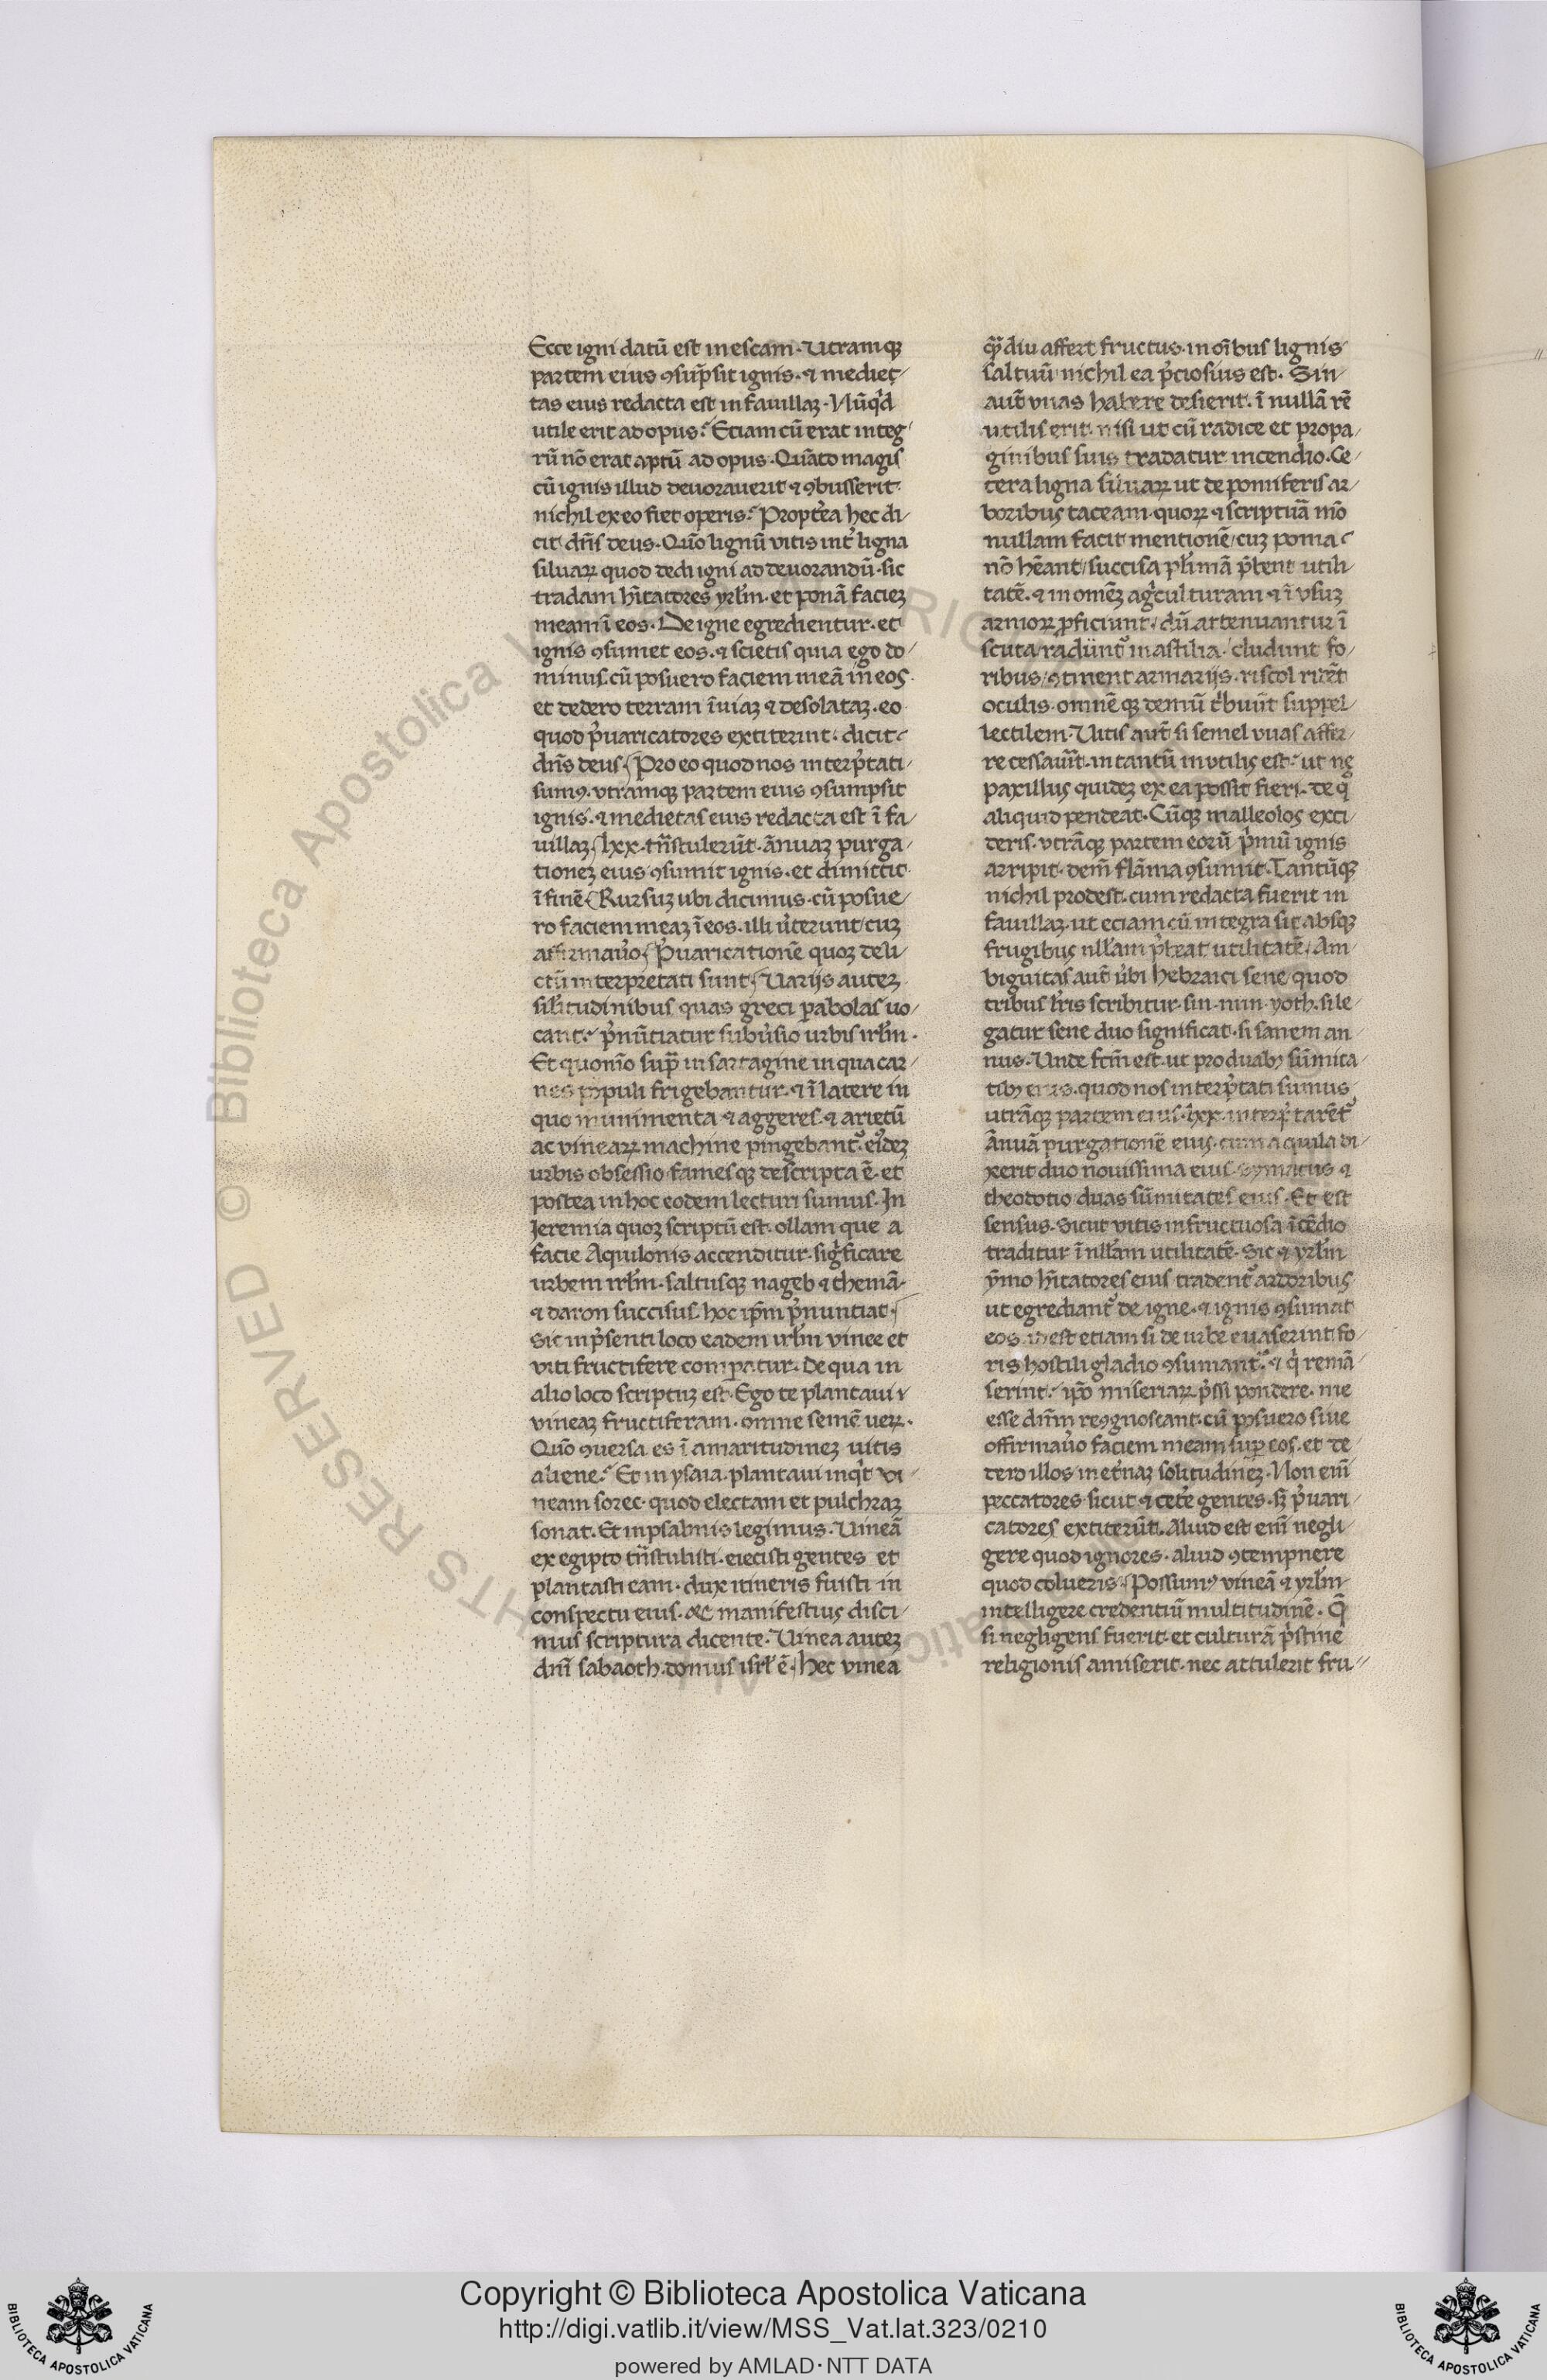 Ecce igni datū est in escam. Utramqꝫ
partem eius ꝯsūpsit ignis. ⁊ mediet/
tas eius redacta est in fauillaꝫ. Nūqͥd
utile erit ad opus? Etiam cū erat integ/
rū nō erat aptū ad opus. Quāto magis
cū ignis illud deuorauerit ⁊ ꝯbusserit.
nichil ex eo fiet operis? Propt̾ea hec di/
cit dn̄s deus. Quō lignū vitis int̾ ligna
siluaꝝ quod dedi igni ad deuorandū. sic
tradam hītatores yrl̄m. et ponā facieꝫ
meam ī eos. De igne egredientur. et
ignis ꝯsumet eos. ⁊ scietis quia ego do/
minus. cū posuero faciem meā in eos.
et dedero terram īuiaꝫ ⁊ desolataꝫ. eo
quod p̾uaricatores extiterint. dicit
dn̄s deus. Pro eo quod nos interp̾tati
sumꝰ. vtramqꝫ partem eius ꝯsumpsit
ignis. ⁊ medietas eius redacta est ī fa/
uillaꝫ. lxx. tn̄stulerūt. ānuaꝫ purga/
tioneꝫ eius ꝯsumit ignis. et dimittit
ī finē. Rursuꝫ ubi diximus. cū posue/
ro faciem meaꝫ ī eos. illi u̾terunt cuꝫ
affirmau̾o. P̾uaricationē quoꝫ deli/
ctū interpretati sunt. Uarijs auteꝫ
sil̄itudinibus quas greci ꝑabolas uo/
cant. p̾nūtiatur subu̾sio urbis irl̄m.
Et quomō sup̄ in sartagine in qua car/
nes populi frigebantur. ⁊ ī latere in
quo munimenta ⁊ aggeres. ⁊ arietū
ac vineaꝝ machine pingebant᷑. eiꝰdeꝫ
urbis obsessio famesqꝫ descripta ē. et
postea in hoc eodem lecturi sumus. In
Ieremia quoꝫ scriptū est. ollam que a
facie Aquilonis accenditur. sigͥficare
urbem irl̄m. saltusqꝫ nageb ⁊ themā.
⁊ daron succisus. hoc ip̄m p̾nuntiat.
Sic in p̾senti loco eadem irl̄m vinee et
viti fructifere comꝑatur. De qua in
alio loco scriptuꝫ est. Ego te plantaui
vineaꝫ fructiferam. omne semē ueꝝ.
Quō ꝯuersa es ī amaritudineꝫ uitis
aliene? Et in ysaia. plantaui inqͥt vi/
neam sorec. quod electam et pulchraꝫ
sonat. Et in psalmis legimus. Uineā
ex egipto tn̄stulisti. eiecisti gentes et
plantasti eam. dux itineris fuisti in
conspectu eius. ⁊c manifestius disci/
mus scriptura dicente. Uinea auteꝫ
dn̄i sabaoth. domus isrl̄ ē. Hec vinea
qͣ̄diu affert fructus. in oībus lignis
saltuū nichil ea p̾ciosius est. Sin
aut̄ vuas habere desierit. ī nullā rē
utilis erit. nisi ut cū radice et propa/
ginibus suis tradatur incendio. Ce/
tera ligna siluaꝝ ut de pomiferis ar/
boribus taceam. quoꝝ ⁊ scriptuā mō
nullam facit mentionē/ cuꝫ poma
nō hēant/ succisa pl̄imā p̾bent utili/
tatē. ⁊ in omēꝫ agͥculturam ⁊ ī vsuꝫ
armoꝝ ꝓficiunt. dū attenuantur ī
scuta/ radūnt᷑ in astilia. cludunt fo/
ribus/ ꝯtinent armarijs.
oculis. omnē qꝫ demū tͥbuūt suppel/
lectilem. Uitis aut̄ si semel vuas affer/
re cessau̾it. in tantū inutilis est. ut ne
paxillus quideꝫ ex ea possit fieri. de qͦ
aliquid pendeat. Cūqꝫ malleolos exci/
deris. vtrāqꝫ partem eorū p̾mū ignis
arripit. dem̄ flāma ꝯsumit. Tantūqꝫ
nichil prodest. cum redacta fuerit in
fauillaꝫ. ut eciam cū integra sit absqꝫ
frugibus nll̄am p̾beat utilitatē. Am/
biguitas aut̄ u̾bi hebraici sene/ quod
tribus lr̄is scribitur. sin. nun. yoth. si le/
gatur sene duo significat. si sanem an/
nus. Unde fctm̄ est. ut pro duabꝰ sūmita/
tibꝰ eius. quod nos interp̾tati sumus
utrāqꝫ partem eius. lxx. interp̾tarēt᷑
ānuā purgationē eius. cum aquila di/
xerit duo nouissima eius. symacus ⁊
theodotio/ duas sūmitates eius. Et est
sensus. Sicut vitis infructuosa īcēdio
traditur ī nll̄am utilitatē. Sic ⁊ yrl̄m
ȳmo hītatores eius tradent᷑ ardoribus
ut egrediant᷑ de igne. ⁊ ignis ꝯsumat
eos. id est etiam si de urbe euaserint fo/
ris hostili gladio ꝯsumant᷑. ⁊ qͥ remā/
serint. ip̄o miseriaꝝ p̾ssi pondere. me
esse dn̄m recognoscant. cū posuero siue
offirmau̾o faciem meam suꝑ eos. et de/
dero illos in et̾naꝫ solitudineꝫ. Non em̄
peccatores sicut ⁊ cet̾e gentes. sꝫ p̾uari/
catores extiterūt. Aliud est em̄ negli/
gere quod ignores. aliud ꝯtempnere
quod colueris. Possumꝰ vineā ⁊ yrl̄m
intelligere credentiū multitudinē. Q̄
si negligens fuerit. et culturā p̾stine
religionis amiserit. nec attulerit fru//
Copyright © Biblioteca Apostolica Vaticana
http://digi.vatlib.it/view/MSS_Vat.lat.323/0210
powered by AMLAD·NTT DATA
BIBLIOTECA APOSTOLICA VATICANA
BIBLIOTECA APOSTOLICA VATICANA